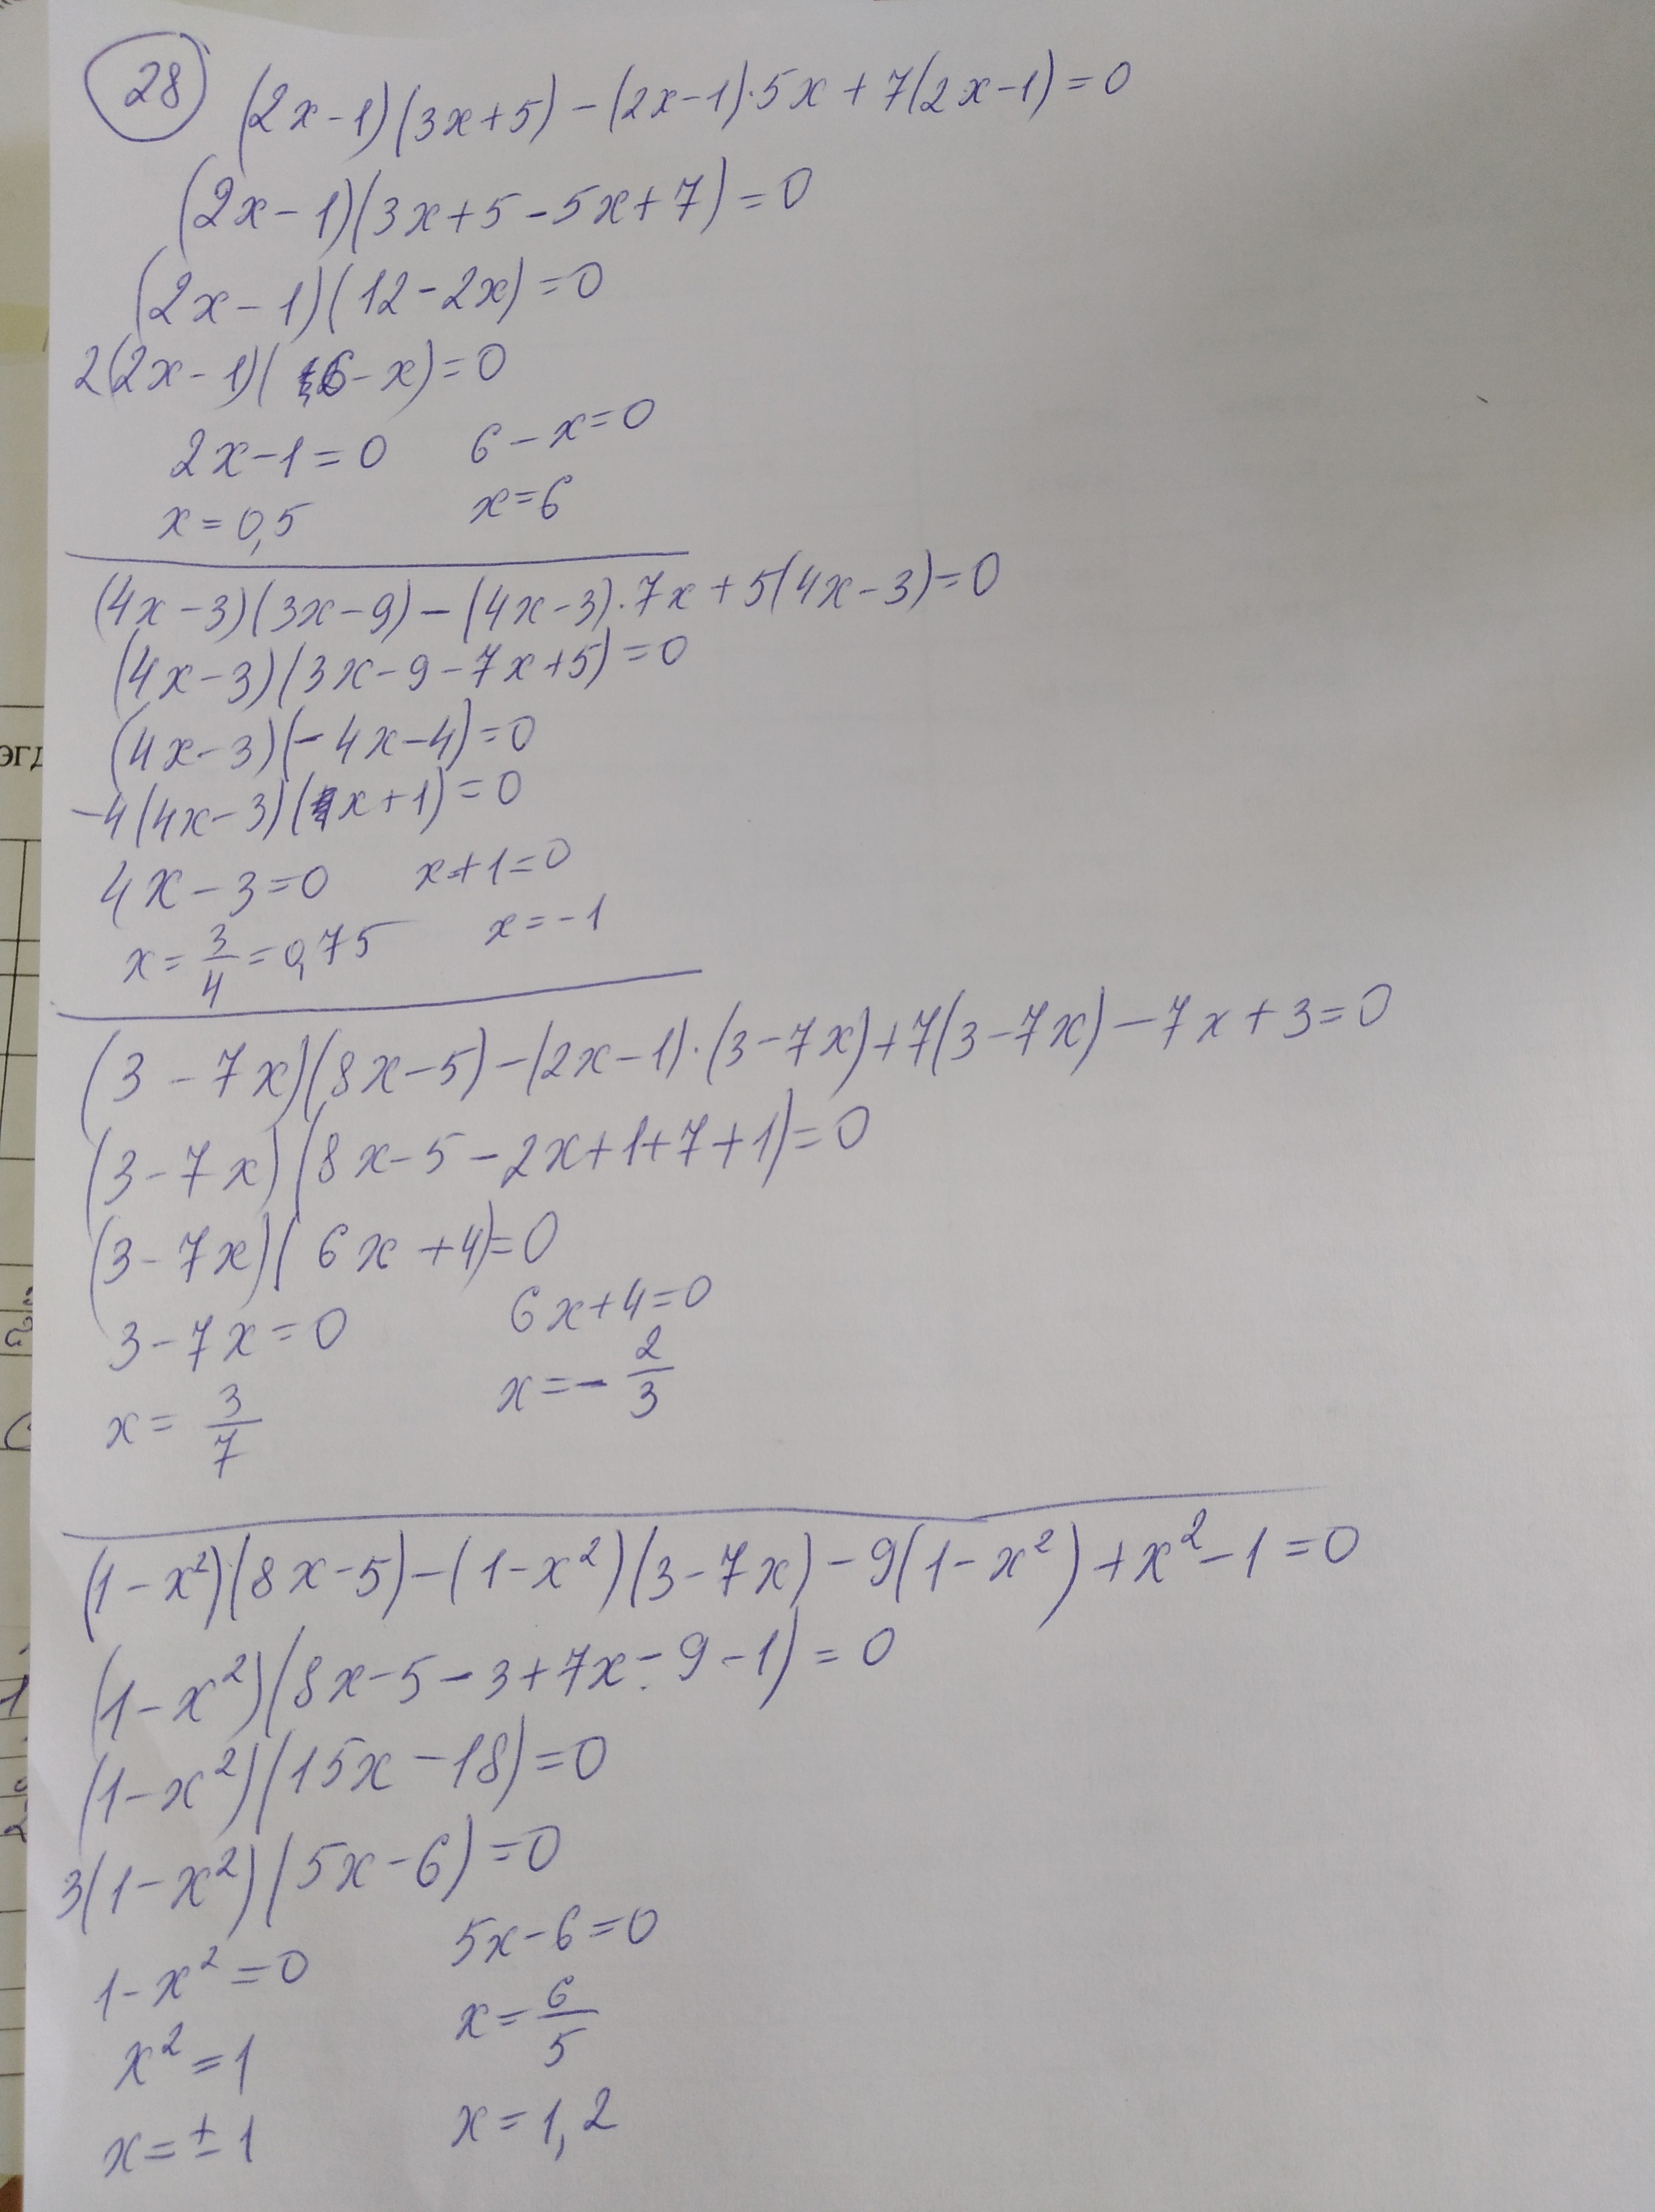 28 (2x-1)(3x+5)-(2x-1)·5x+7(2x-1)=0
(2x-1)(3x+5-5x+7)=0
(2x-1)(12-2x)=0
2(2x-1)(6-x)=0
2x-1=0 6-x=0
x=0,5 x=6
(4x-3)(3x-9)-(4x-3)·7x+5(4x-3)=0
(4x-3)(3x-9-7x+5)=0
(4x-3)(-4x-4)=0
-4(4x-3)(x+1)=0
4x-3=0 x+1=0
x=3/4=0,75 x=-1
(3-7x)(8x-5)-(2x-1)·(3-7x)+7(3-7x)-7x+3=0
(3-7x)(8x-5-2x+1+7+1)=0
(3-7x)(6x+4)=0
3-7x=0 6x+4=0
x=3/7 x=-2/3
(1-x²)(8x-5)-(1-x²)(3-7x)-9(1-x²)+x²-1=0
(1-x²)(8x-5-3+7x-9-1)=0
(1-x²)(15x-18)=0
3(1-x²)(5x-6)=0
1-x²=0 5x-6=0
x²=1 x=6/5
x=±1 x=1,2